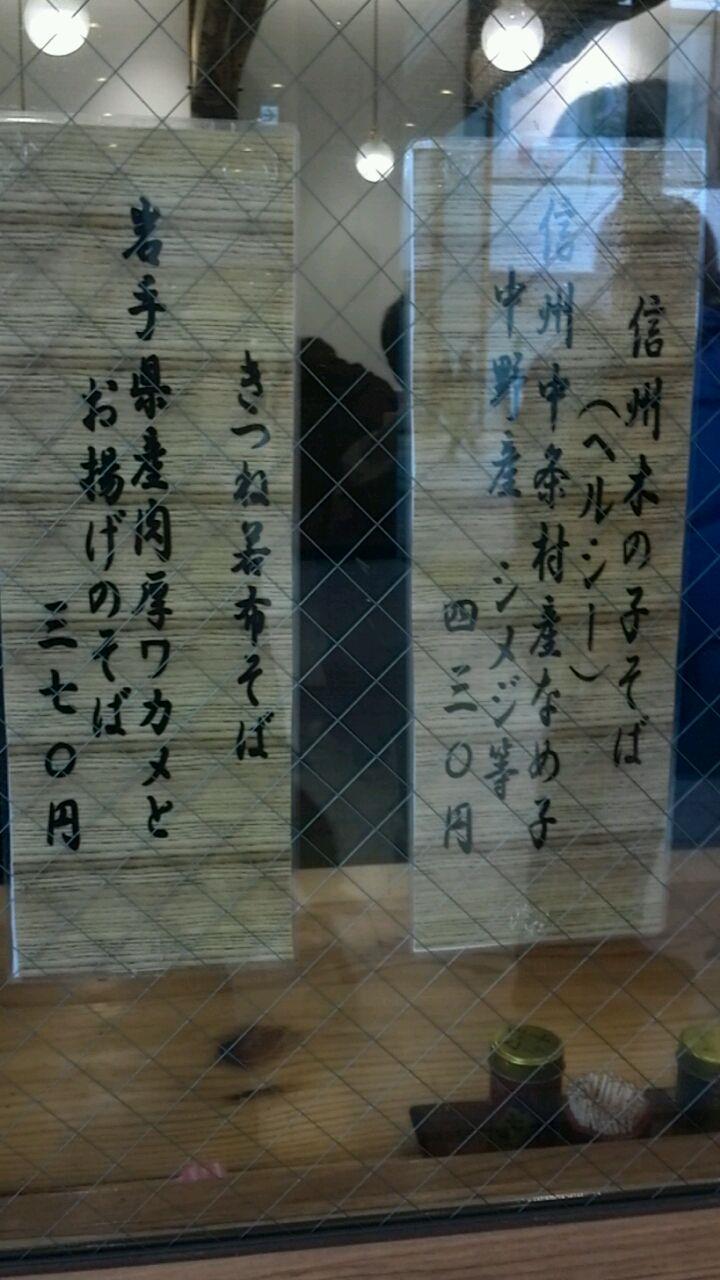 信州木の子そば
（ヘルシー）
信州中条村産なめ子
中野産　シメジ等
四三〇円
きつね若布そば
岩手県産肉厚ワカメと
お揚げのそば
三七〇円